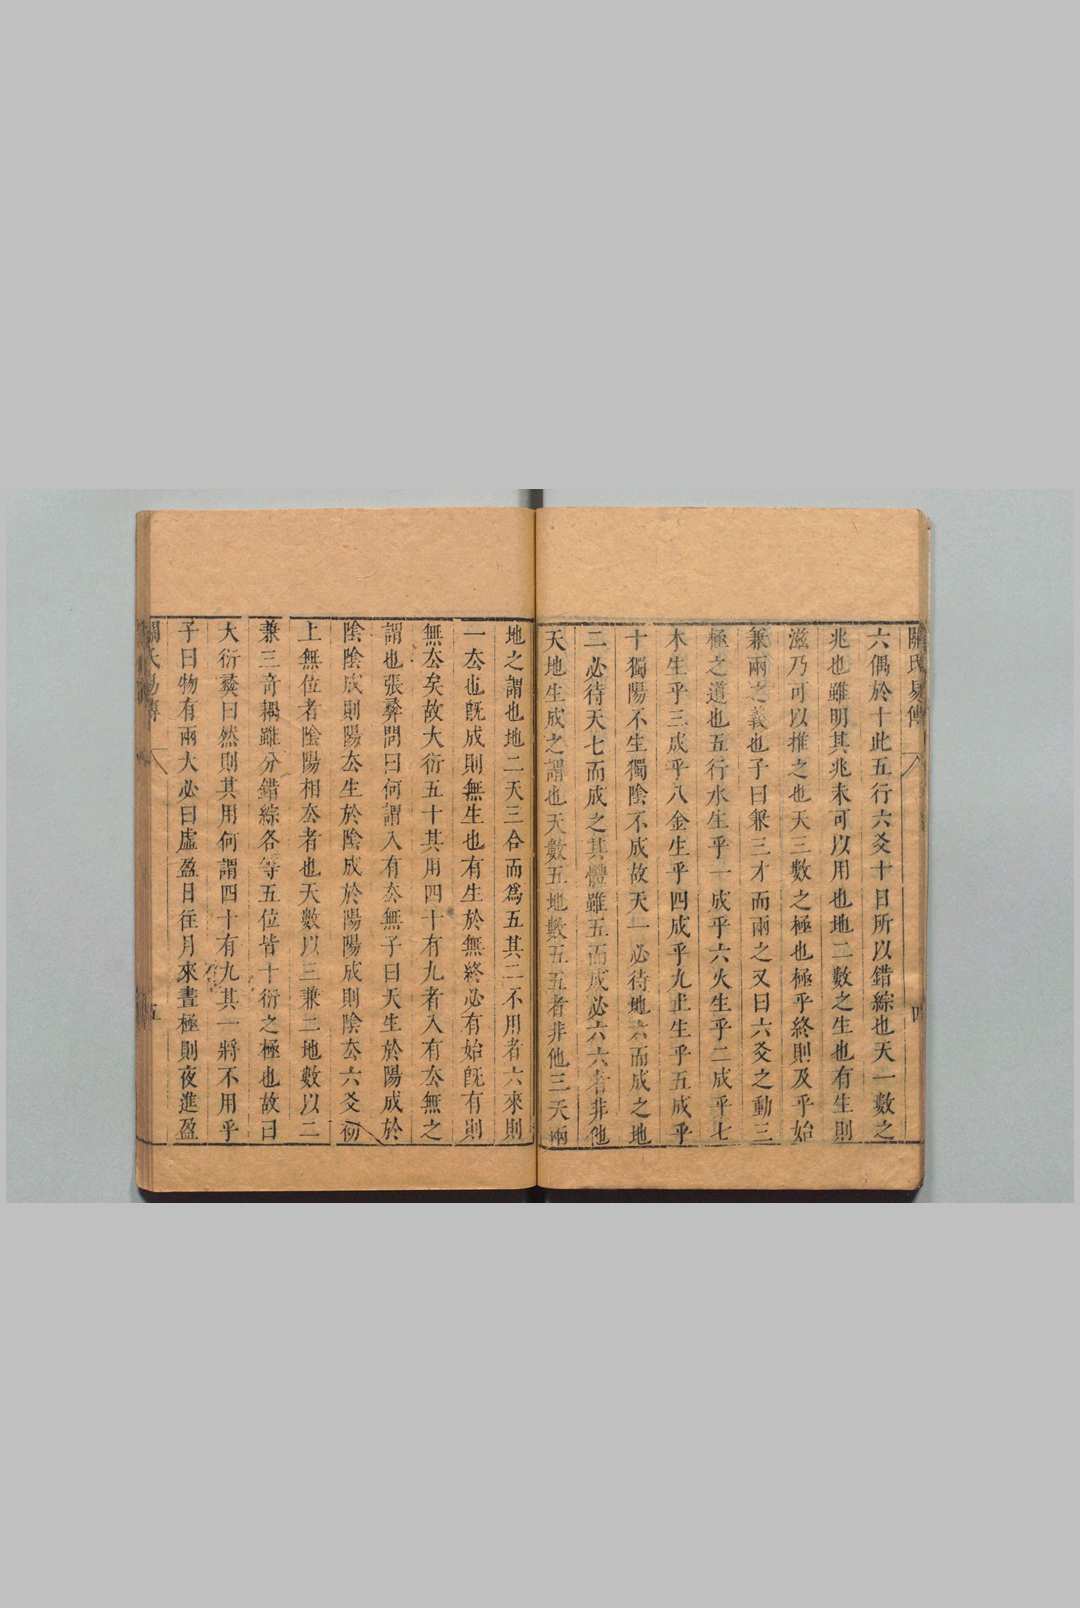 關氏易傳 四
六偶於十此五行六爻十日所以錯綜也天一數之
兆也雖明其兆未可以用也地二數之生也有生則
滋乃可以推之也天三數之極也極乎終則及乎始
兼兩之義也子曰兼三才而兩之又曰六爻之動三
極之道也五行水生乎一成乎六火生乎二成乎七
木生乎三成乎八金生乎四成乎九土生乎五成乎
十獨陽不生獨陰不成故天一必待地六而成之地
二必待天七而成之其體雖五而成必六六者非他
天地生成之謂也天數五地數五五者非他三天兩
地之謂也地二天三合而爲五其二不用者六來則
一厺也旣成則無生也有生於無終必有始旣有則
無厺矣故大衍五十其用四十有九者入有厺無之
謂也張彝問曰何謂入有厺無子曰天生於陽成於
陰陰成則陽厺生於陰成於陽陽成則陰厺六爻初
上無位者陰陽相厺者也天數以三兼二地數以二
兼三奇耦雖分錯綜各等五位皆十衍之極也故曰
大衍彝曰然則其用何謂四十有九其一將不用乎
子曰物有兩大必曰虛盈日往月來晝極則夜進盈
五